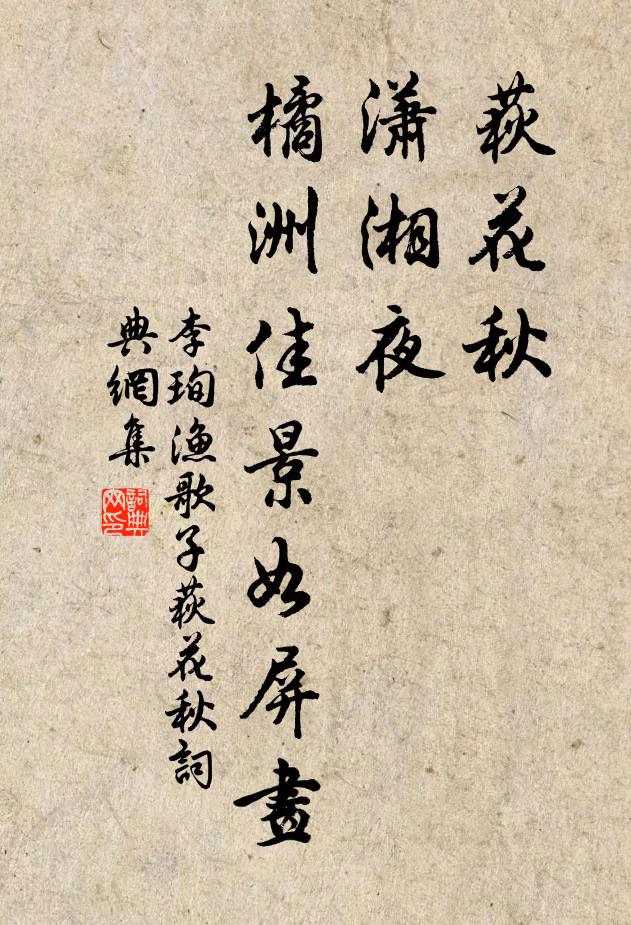 萩花秋
瀟湘夜
橘洲佳景如屏畫
李珣漁歌子萩花秋詞
典網集
詞典
网印